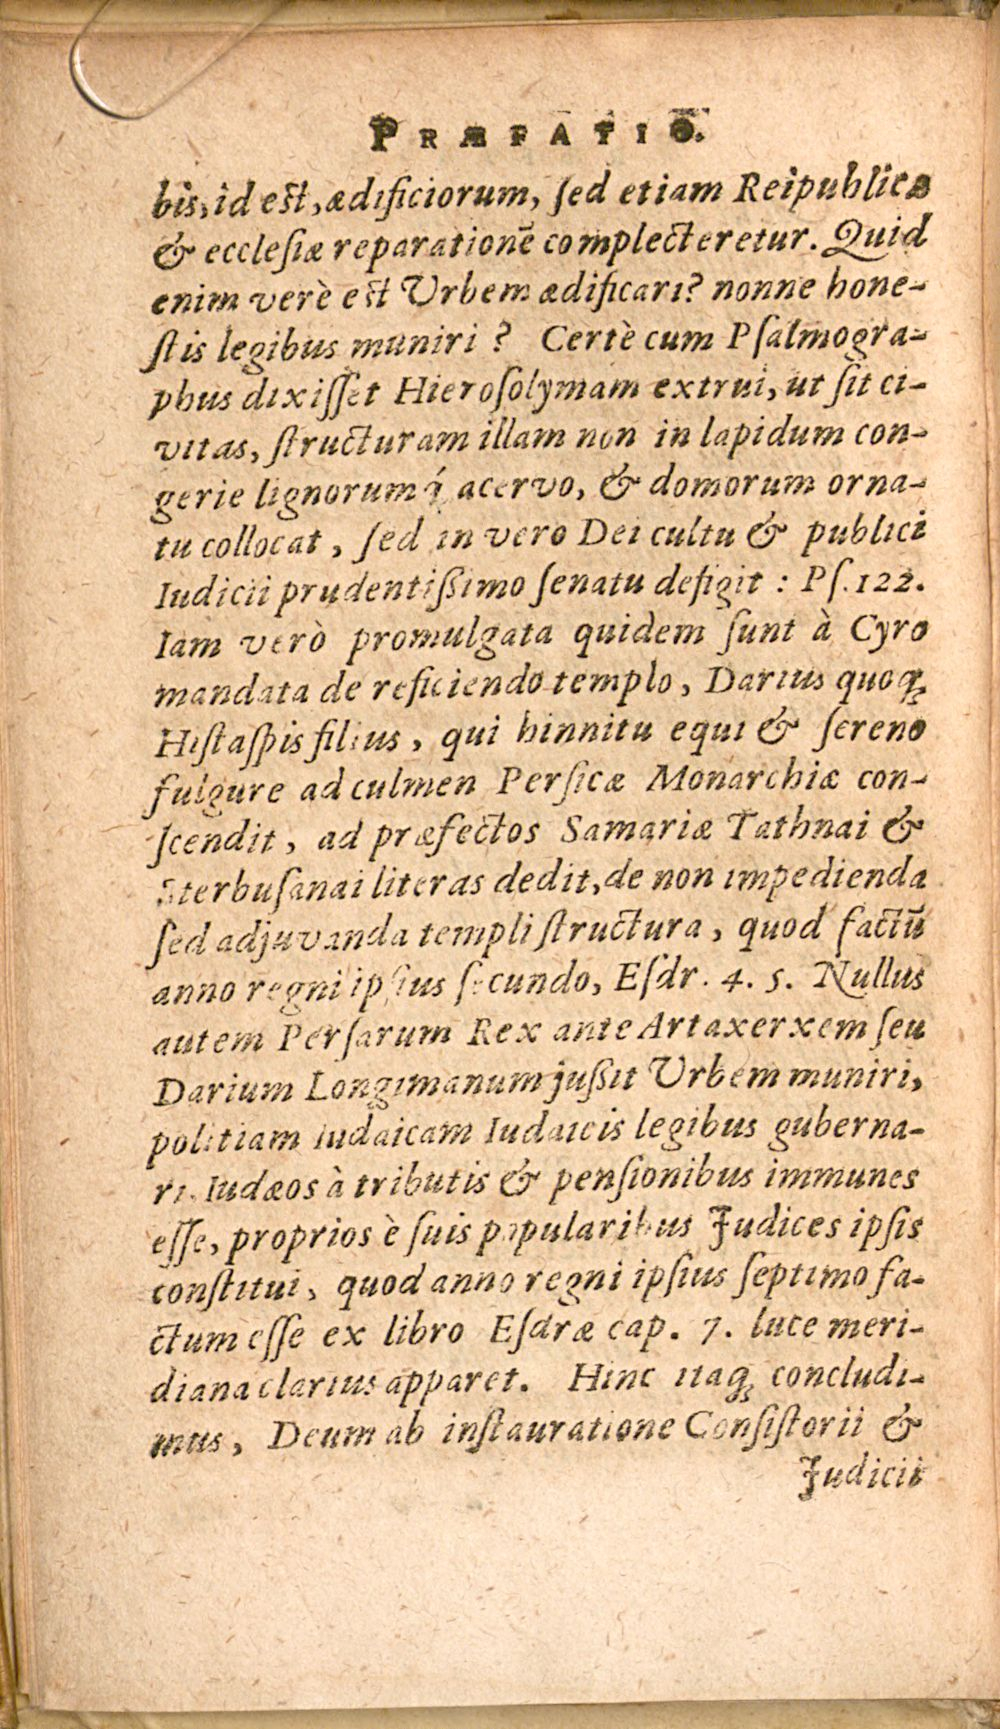 PRÆFATIO.
bis, id est, ædificiorum, ſed etiam Reipublicæ
& eccleſiæ reparationē complecteretur. Quid
enim verè est Urbem ædificari? nonne hone-
ſtis legibus muniri? Certè cum Pſalmogra-
phus dixiſſet Hieroſolymam extrui, ut ſit ci-
vitas, ſtructuram illam non in lapidum con-
gerie lignorumq́; acervo, & domorum orna-
tu collocat, ſed in vero Dei cultu & publici
Iudicii prudentiſſimo ſenatu defigit: Pſ. 122.
Iam verò promulgata quidem ſunt à Cyro
mandata de reficiendo templo, Darius quoq;
Hiſtaſpis filius, qui hinnitu equi & ſereno
fulgure ad culmen Perſicæ Monarchiæ con-
ſcendit, ad præfectos Samariæ Tathnai &
Sterbuſanai literas dedit, de non impedienda
ſed adjuvanda templi ſtructura, quod factū
anno regni ipſius ſecundo, Eſdr. 4. 5. Nullus
autem Perſarum Rex ante Artaxerxem ſeu
Darium Longimanum juſſit Urbem muniri,
politiam Iudaicam Iudaicis legibus guberna-
ri, Iudæos à tributis & penſionibus immunes
eſſe, proprios è ſuis popularibus Judices ipſis
conſtitui, quod anno regni ipſius ſeptimo fa-
ctum eſſe ex libro Eſdræ cap. 7. luce meri-
diana clarius apparet. Hinc itaq; concludi-
mus, Deum ab inſtauratione Conſiſtorii &
Judicii